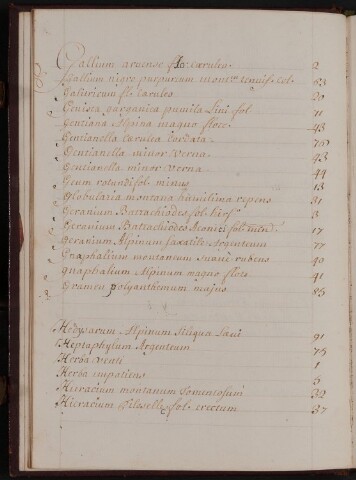 Gallium arvense flo: caruleo 2
Gallium nigro purpuriam mont: tenuif. col. 63
Galericum fl: caruleo 20
Genista garganica pumila Lini fol 71
Gentiana Alpina magno flore 43
Gentianella caruea cordata 76
Gentianella minor verna 43
Gentianella minor verna 44
Geum rotundifol minus 13
Globularia montana humilima repens 31
Geranium Batrachiodes fol. hirs 3
Geranium Battachiodes 17
Geranium Alpinum saxatile Argenteum 77
Gnaphalium montanum suave rubens 40
Gnaphalium Alpinum magno flore 41
Gramen polyanthemum majus 85
Hedysarum Alpinum Siliqua Laevi 91
Heptaphylum Argenteum 75
Herba venti 1
Herba impatiens 6
Hieracium montanum Tomentosum 39
Hieracium Pilosellae fol. erectum 37